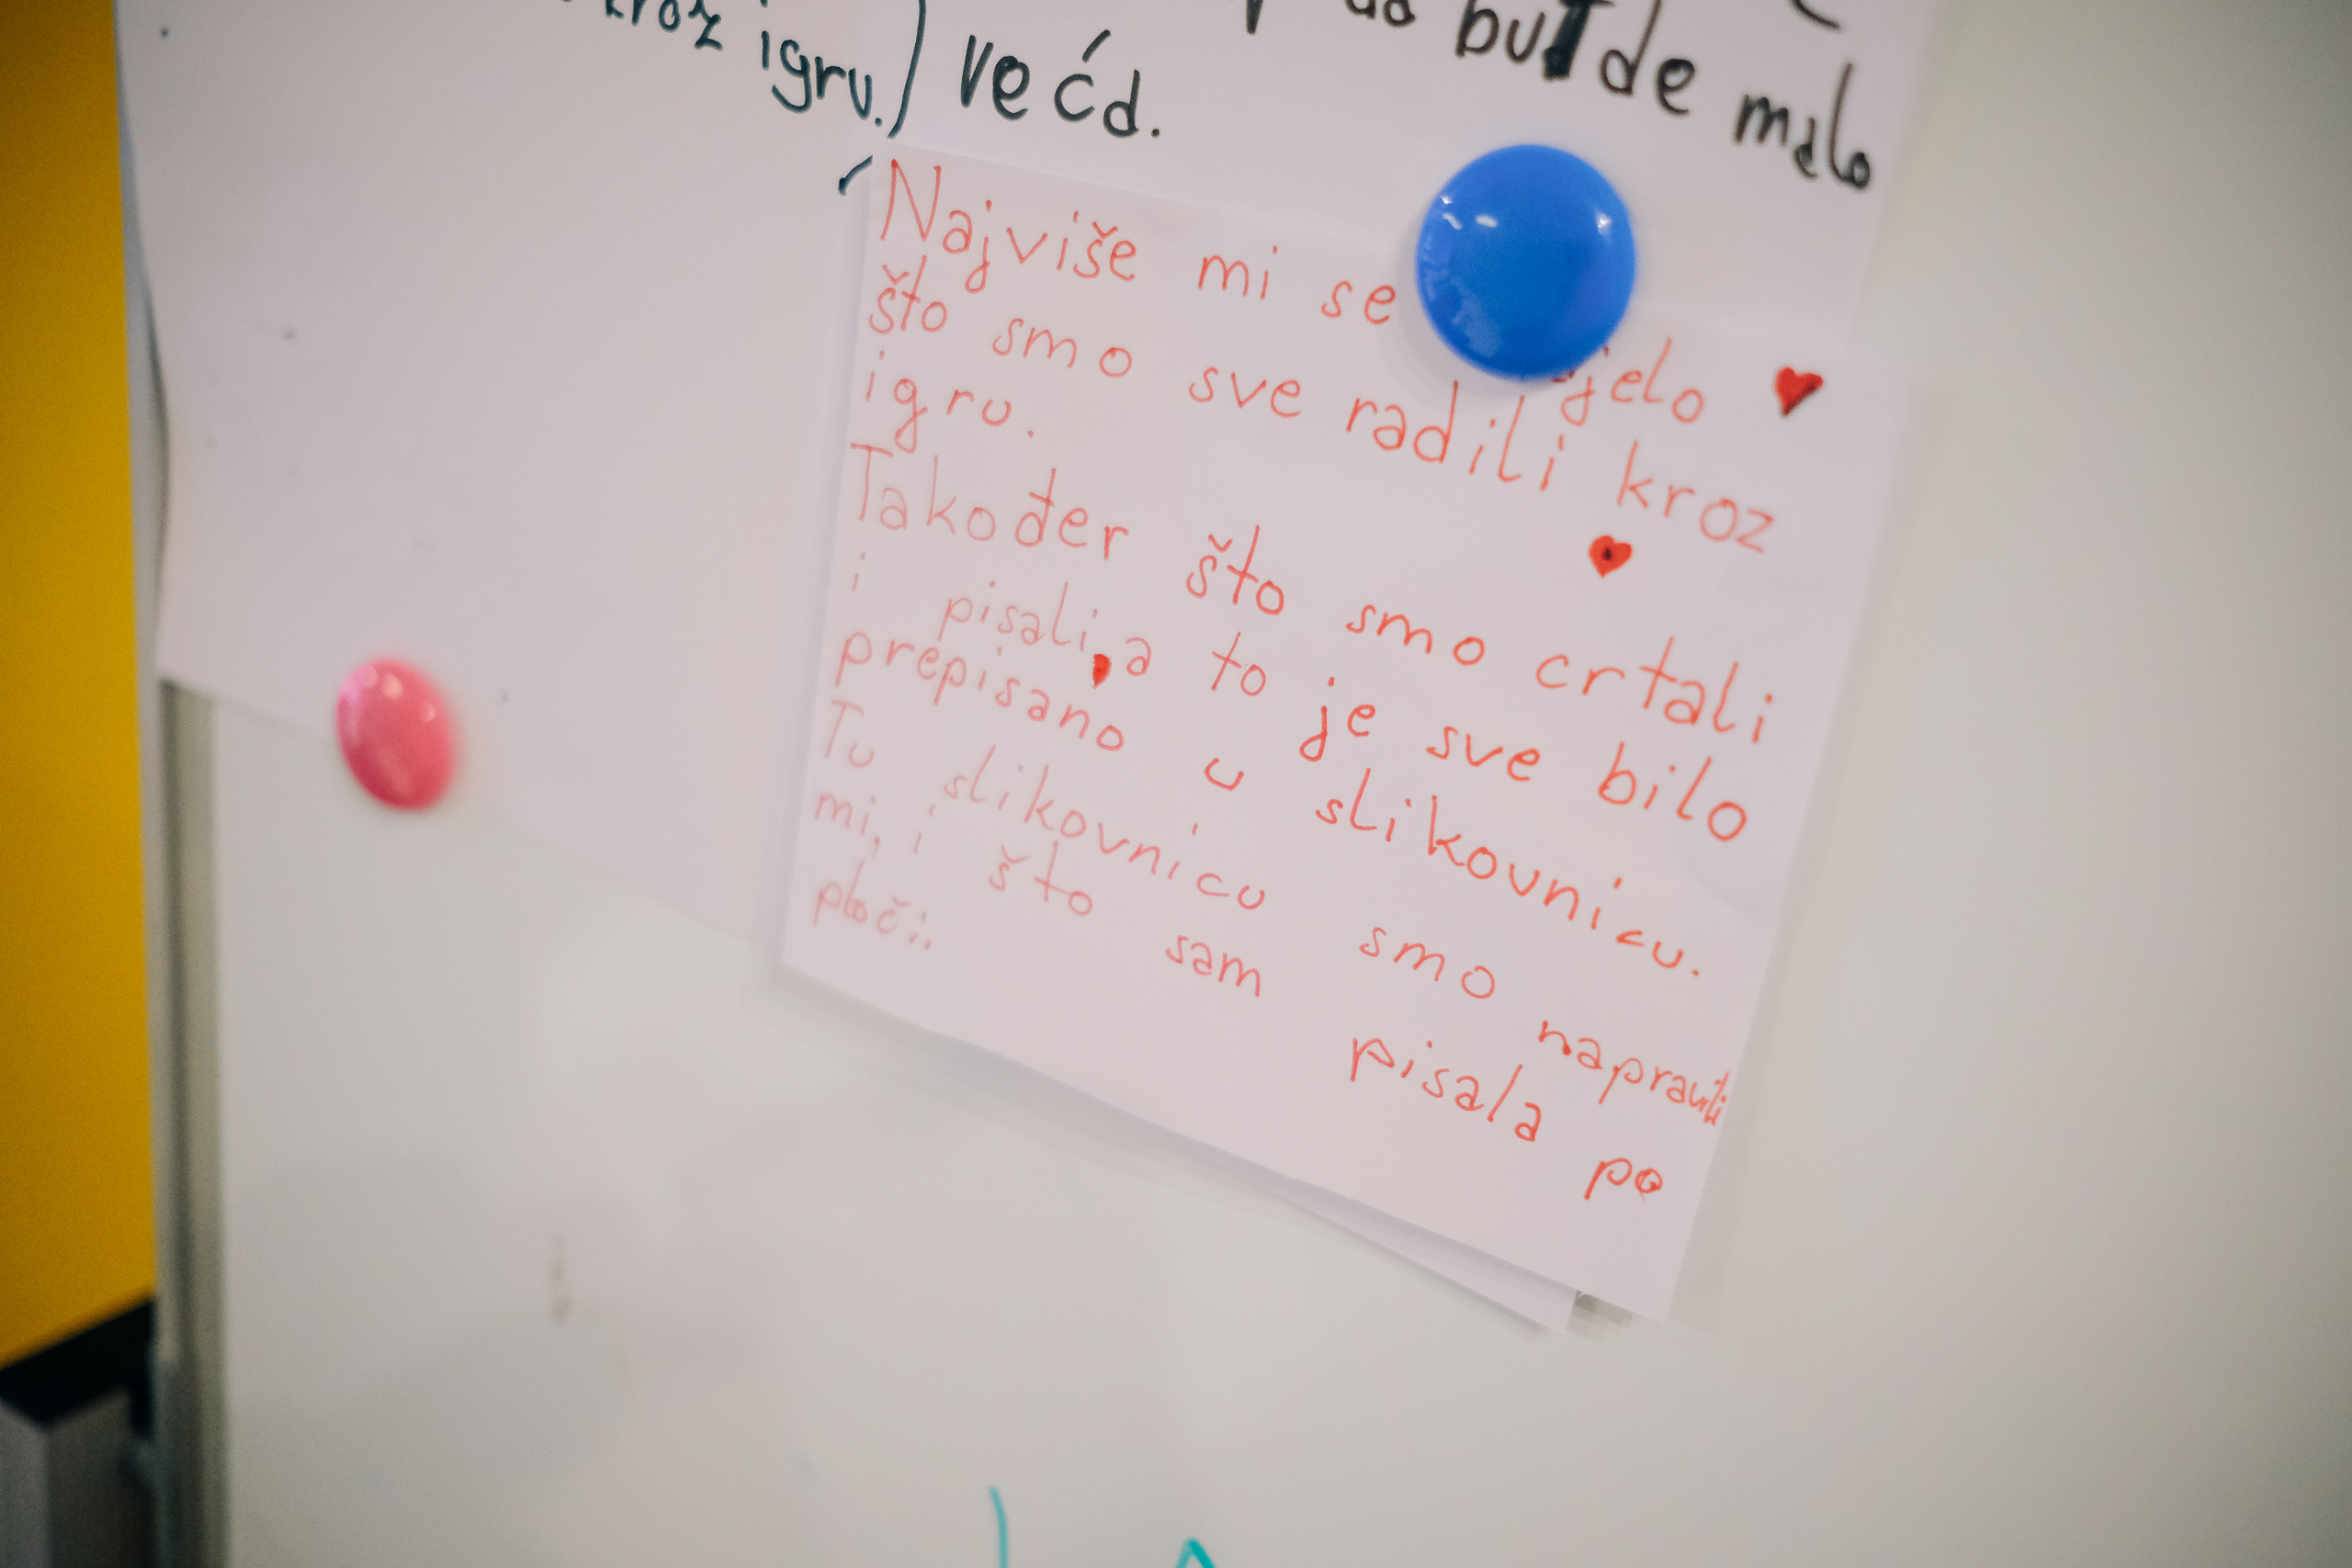 kroz
igru.) već d.
da
budde malo
Najviše mi se jelo
što smo sve radili kroz
igru.
Također što smo crtali
i pisali, a to je sve bilo
prepisano u slikovnicu.
Tu slikovnicu smo napravili
mi, i što sam pisala po
ploči.